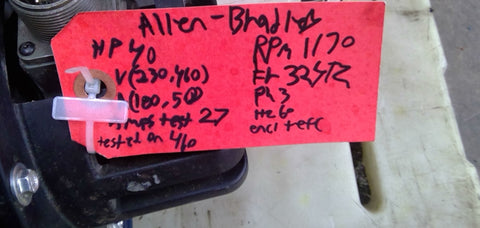 Allen-Bradley
HP 40
V(230,460)
A(100,50)
Amps test 27
tested on 460
RPM 1170
Fr 324TZ
Ph 3
Hz 60
encl tefc